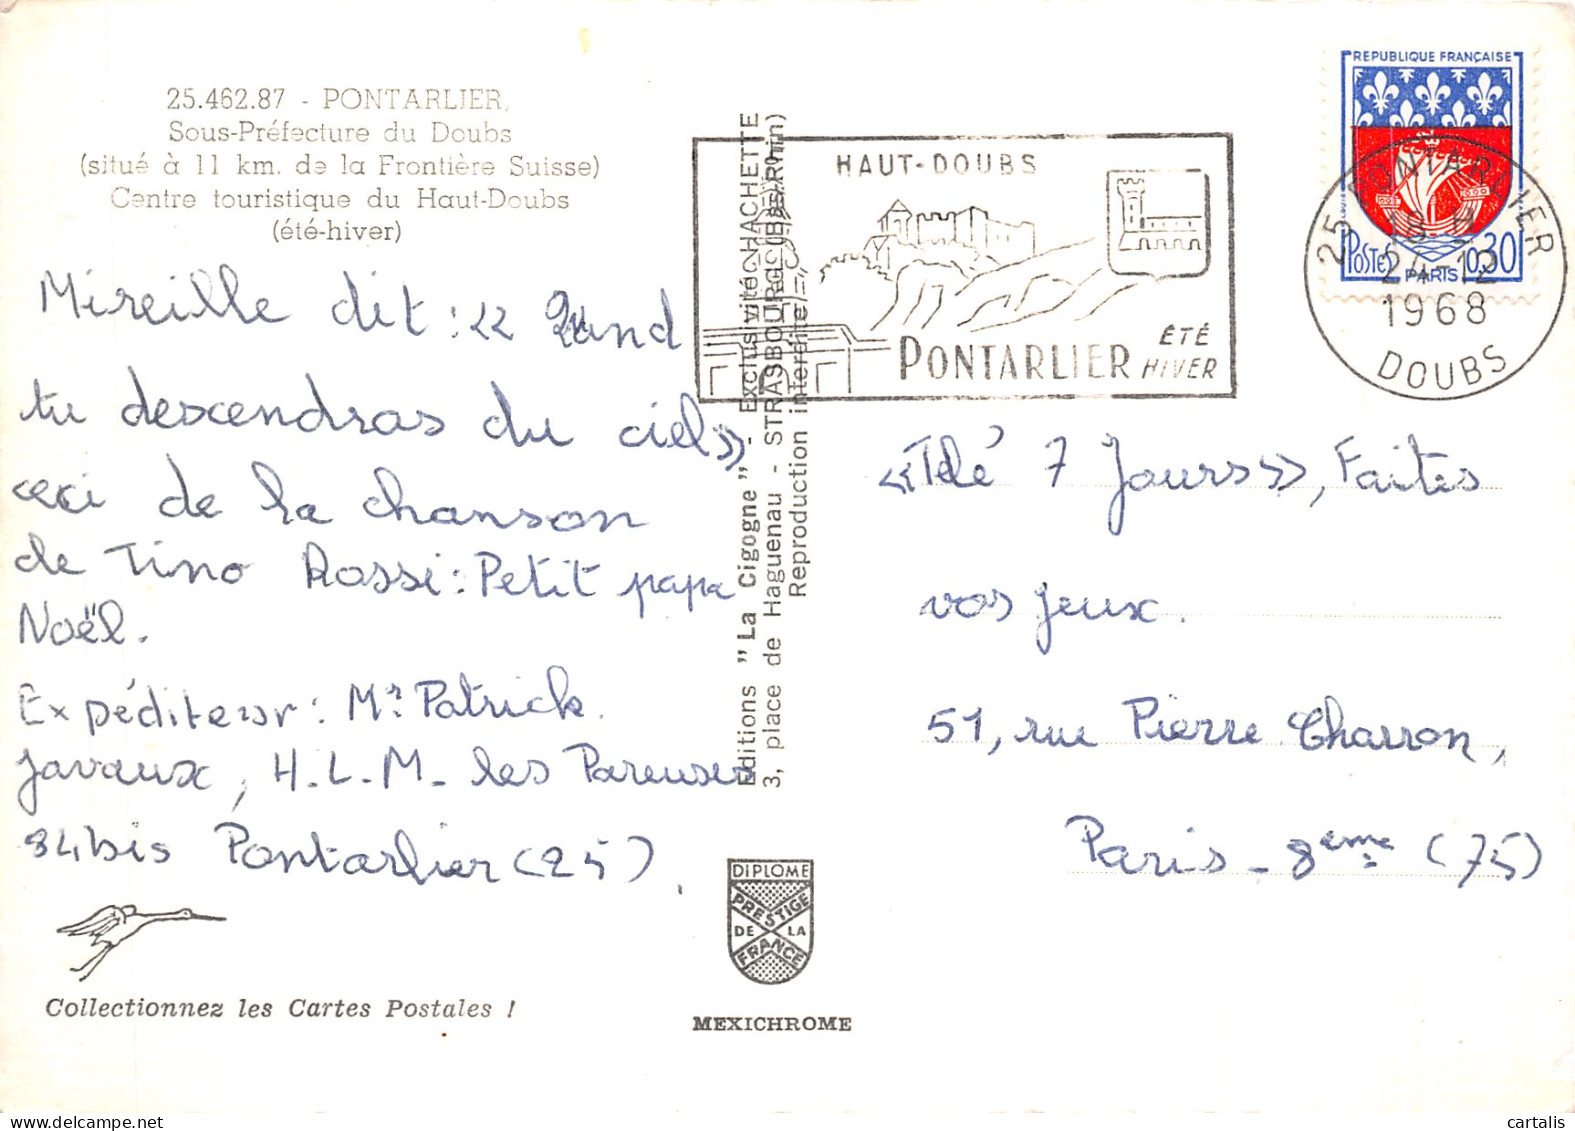 25.462.87 - PONTARLIER,
Sous-Préfecture du Doubs
(situé à 11 km. de la Frontière Suisse)
Centre touristique du Haut-Doubs
(été-hiver)
Mireille dit : << Quand
tu descendras du ciel>>
ceci de la chanson
de Tino Rossi : Petit papa
Noël.
Expéditeur : Mr Patrick
Javaux, H.L.M. les Pareuses
84bis Pontarlier (25).
Collectionnez les Cartes Postales !
Editions "La Cigogne" - Exclusivité HACHETTE
3, place de Haguenau - STRASBOURG (Bas-Rhin)
Reproduction interdite
DIPLOME
PRESTIGE
DE LA
FRANCE
MEXICHROME
HAUT-DOUBS
PONTARLIER ÉTÉ
HIVER
REPUBLIQUE FRANÇAISE
POSTES PARIS 0,30
25 PONTARLIER
18 H
24-12
1968
DOUBS
<<Télé 7 Jours>>, Faites
vos jeux.
51, rue Pierre Charron,
Paris - 8ème (75)
cartalis